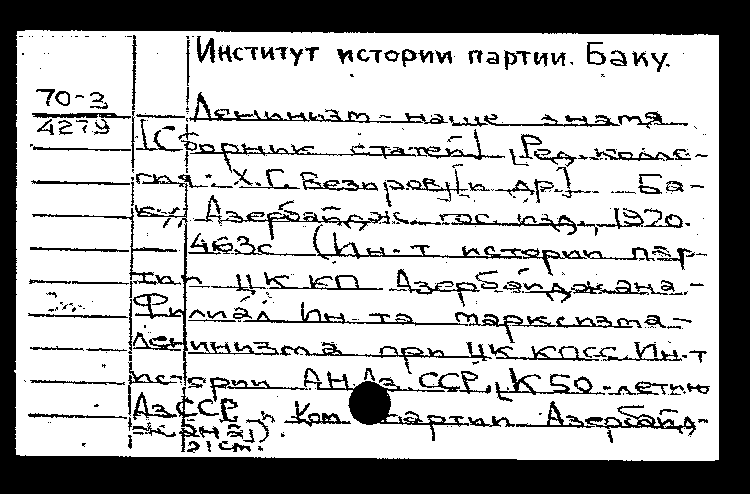 Институт истории партии. Баку.
70-3
4279
Ленинизм - наше знамя
[Сборник статей] [Ред. колле-
гия: Х.Г. Везиров] [и др.] Ба-
ку, Азербайдж. гос. изд., 1970.
463с (Ин-т истории пар-
тии ЦК КП Азербайджана -
Филиал Ин-та марксизма-
ленинизма при ЦК КПСС. Ин-т
истории АН Аз. ССР. [К 50-летию
Аз ССР и Ком партии Азербайд-
жана]).